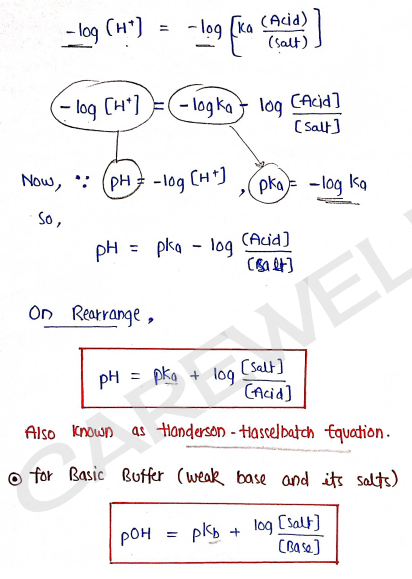 -log [H⁺] = -log [Ka (Acid)/(Salt)]
-log [H⁺] = -log Ka - log [Acid]/[Salt]
Now, ∵ pH = -log [H⁺], pKa = -log Ka
So,
pH = pKa - log [Acid]/[Salt]
On Rearrange,
pH = pKa + log [Salt]/[Acid]
Also Known as Handerson-Hasselbatch Equation.
⊙ for Basic Buffer (weak base and its salts)
pOH = pKb + log [Salt]/[Base]
CAREWEL